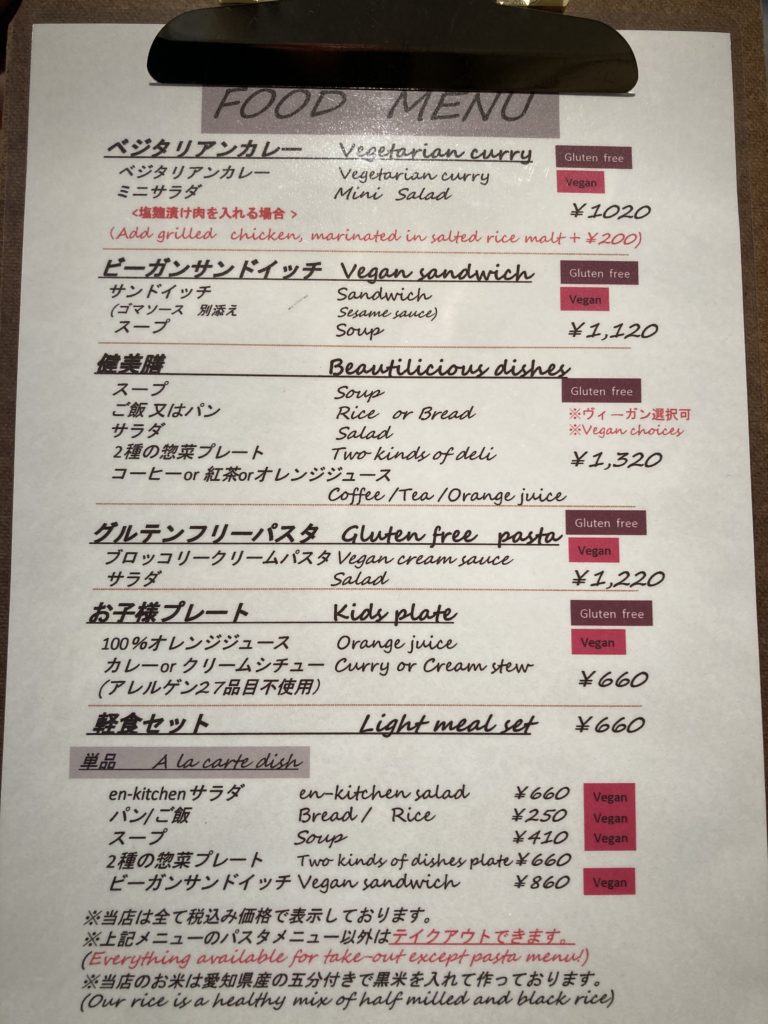 FOOD MENU
ベジタリアンカレー Vegetarian curry Gluten free
ベジタリアンカレー Vegetarian curry Vegan
ミニサラダ Mini Salad
<塩麹漬け肉を入れる場合 > ¥1020
(Add grilled chicken, marinated in salted rice malt + ¥200)
ビーガンサンドイッチ Vegan sandwich Gluten free
サンドイッチ Sandwich Vegan
(ゴマソース 別添え Sesame sauce)
スープ Soup ¥1,120
健美膳 Beautilicious dishes
スープ Soup Gluten free
ご飯 又はパン Rice or Bread ※ヴィーガン選択可
サラダ Salad ※Vegan choices
2種の惣菜プレート Two kinds of deli ¥1,320
コーヒーor 紅茶orオレンジジュース
Coffee /Tea /Orange juice
グルテンフリーパスタ Gluten free pasta Gluten free
ブロッコリークリームパスタ Vegan cream sauce Vegan
サラダ Salad ¥1,220
お子様プレート Kids plate Gluten free
100%オレンジジュース Orange juice Vegan
カレーor クリームシチュー Curry or Cream stew
(アレルゲン27品目不使用) ¥660
軽食セット Light meal set ¥660
単品 A la carte dish
en-kitchenサラダ en-kitchen salad ¥660 Vegan
パン/ご飯 Bread / Rice ¥250 Vegan
スープ Soup ¥410 Vegan
2種の惣菜プレート Two kinds of dishes plate ¥660
ビーガンサンドイッチ Vegan sandwich ¥860 Vegan
※当店は全て税込み価格で表示しております。
※上記メニューのパスタメニュー以外はテイクアウトできます。
(Everything available for take-out except pasta menu!)
※当店のお米は愛知県産の五分付きで黒米を入れて作っております。
(Our rice is a healthy mix of half milled and black rice)